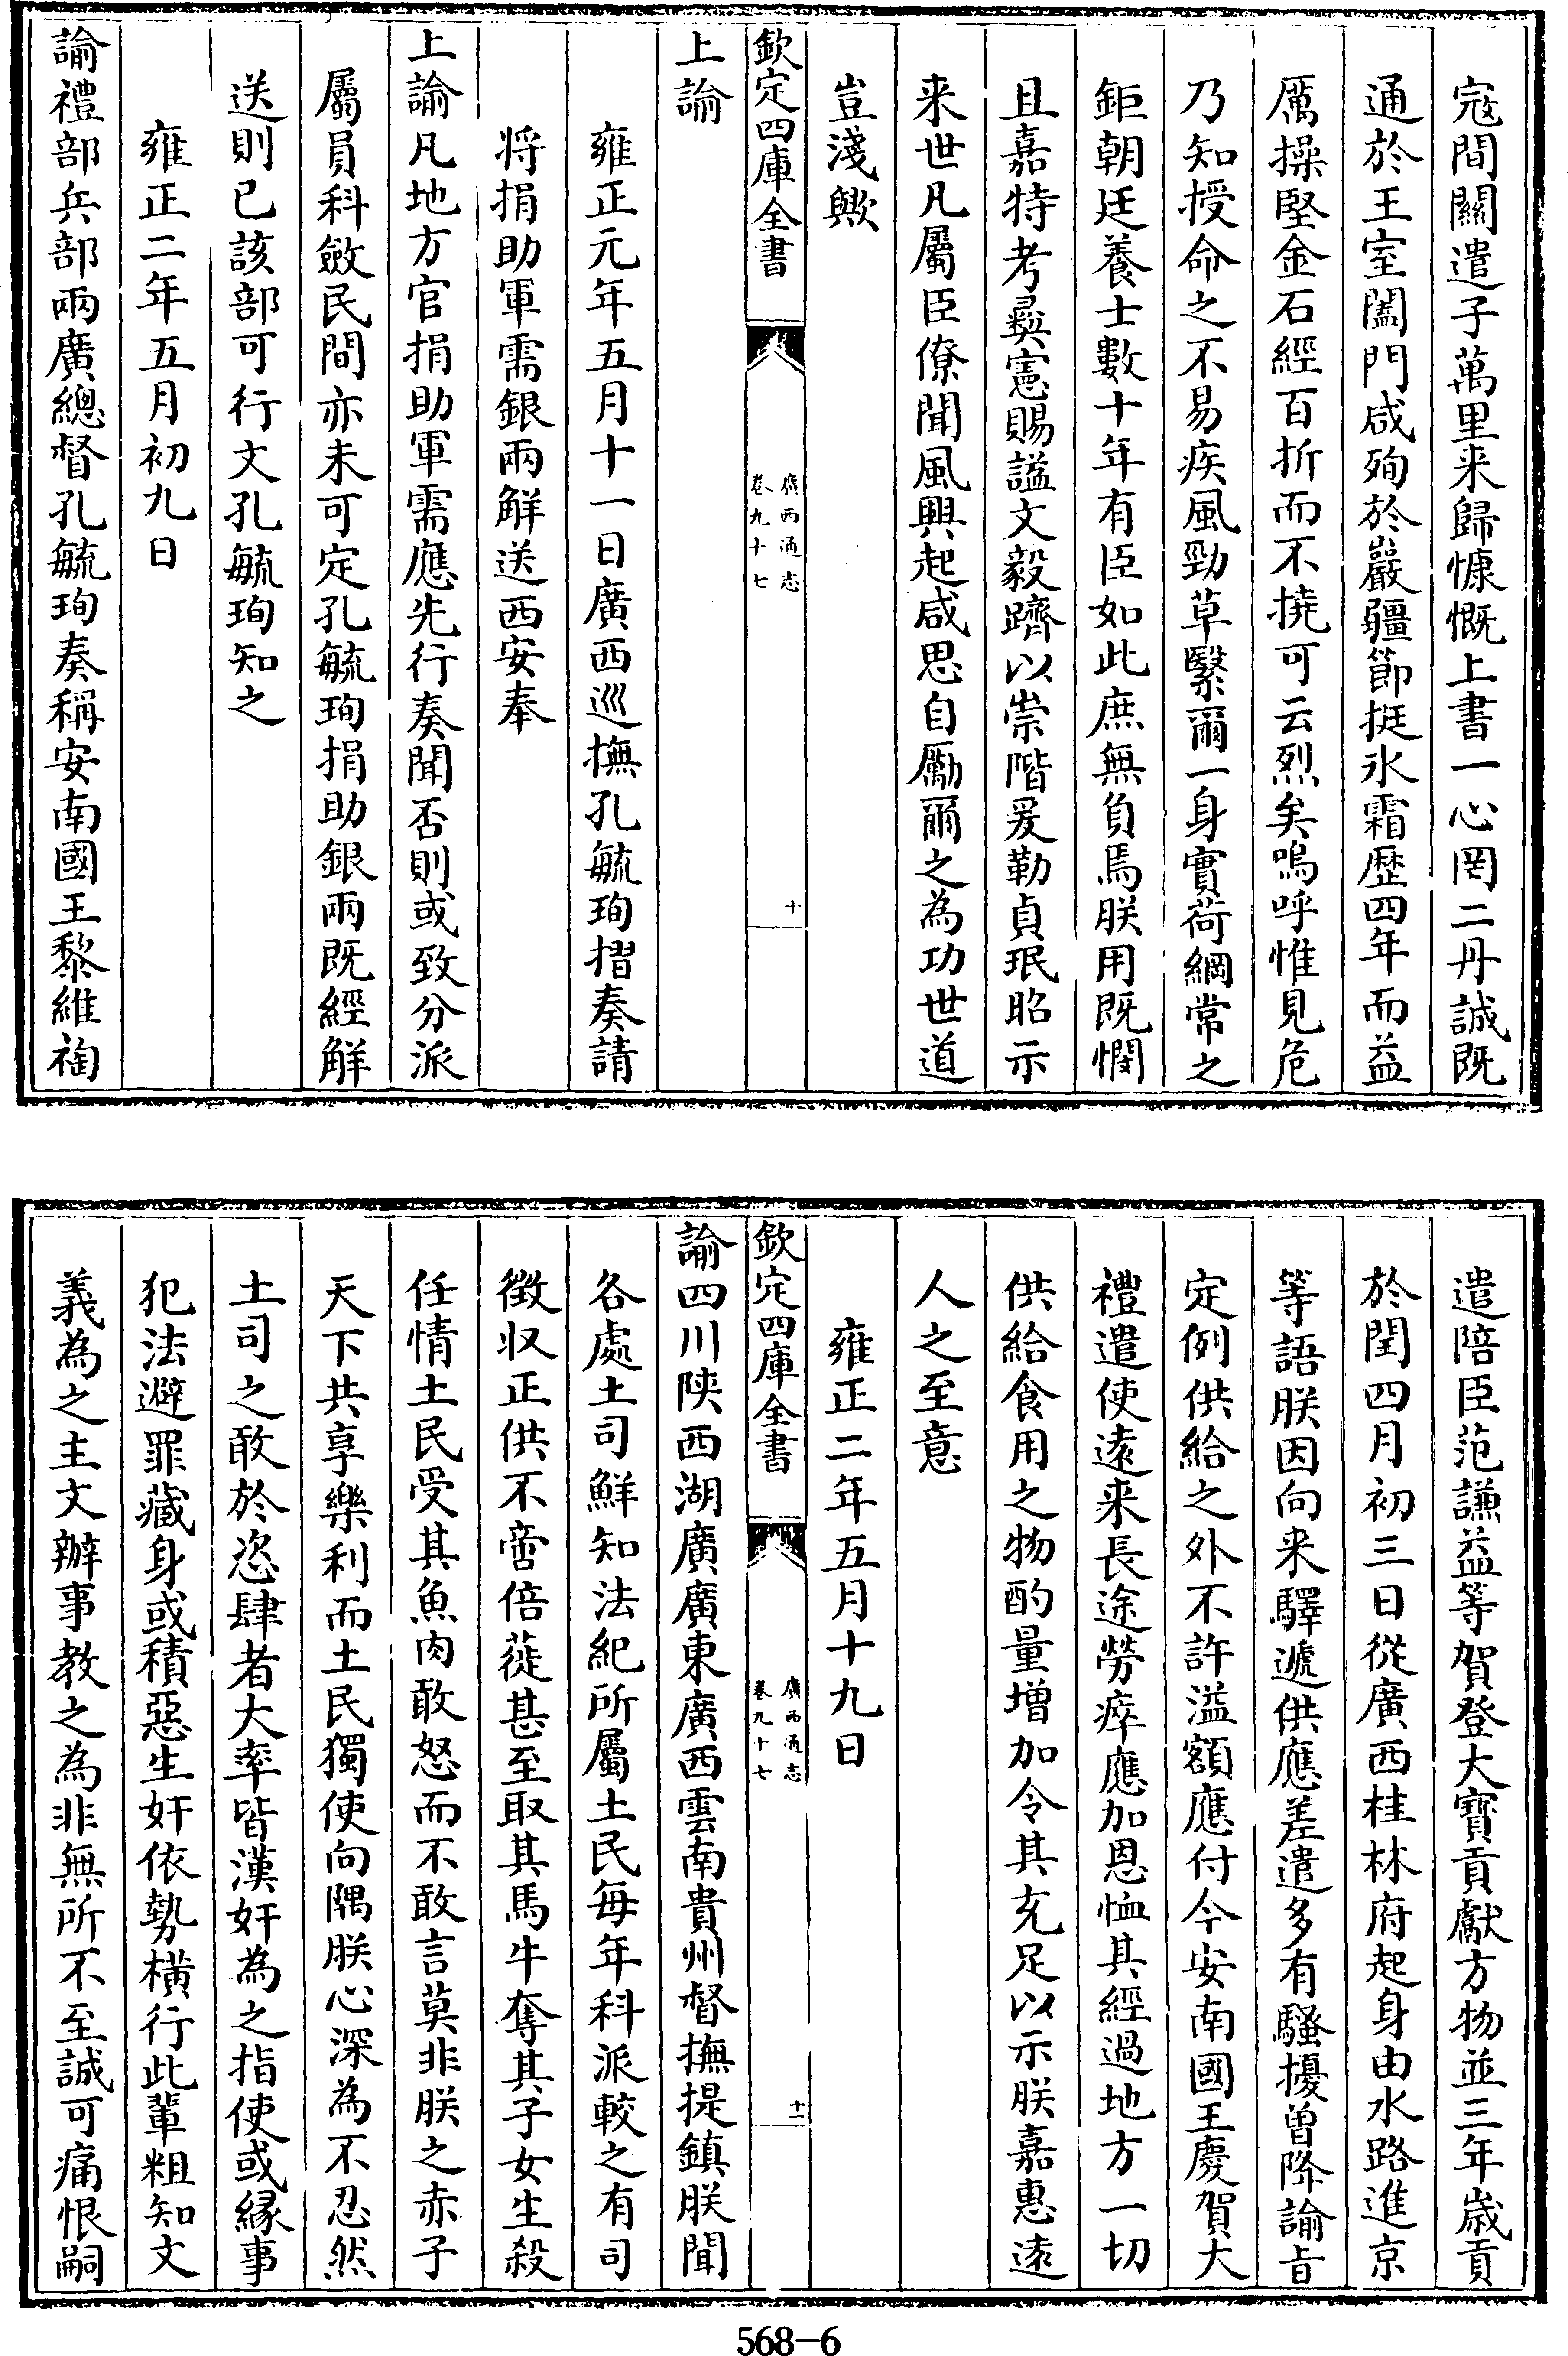 宼間關遣子萬里来歸慷慨上書一心罔二丹誠既
通於王室闔門咸殉於巖疆節挺氷霜歴四年而益
厲操堅金石經百折而不撓可云烈矣嗚呼惟見危
乃知授命之不易疾風勁草繄爾一身實荷綱常之
鉅朝廷養士數十年有臣如此庶無負焉朕用既憫
且嘉特考彛憲賜諡文毅躋以崇階爰勒貞珉昭示
来世凡屬臣僚聞風興起咸思自勵爾之為功世道
豈淺歟
欽定四庫全書
廣西通志
卷九十七
十
上諭
雍正元年五月十一日廣西巡撫孔毓珣摺奏請
將捐助軍需銀兩解送西安奉
上諭凡地方官捐助軍需應先行奏聞否則或致分派
屬員科斂民間亦未可定孔毓珣捐助銀兩既經解
送則已該部可行文孔毓珣知之
雍正二年五月初九日
諭禮部兵部兩廣總督孔毓珣奏稱安南國王黎維祹
遣陪臣范謙益等賀登大寳貢獻方物並三年歳貢
於閏四月初三日從廣西桂林府起身由水路進京
等語朕因向来驛遞供應差遣多有騷擾曽降諭旨
定例供給之外不許溢額應付今安南國王慶賀大
禮遣使逺来長途勞瘁應加恩恤其經過地方一切
供給食用之物酌量增加令其充足以示朕嘉惠逺
人之至意
雍正二年五月十九日
欽定四庫全書
廣西通志
卷九十七
十一
諭四川陜西湖廣廣東廣西雲南貴州督撫提鎮朕聞
各處土司鮮知法紀所屬土民每年科派較之有司
徴収正供不啻倍蓰甚至取其馬牛奪其子女生殺
任情土民受其魚肉敢怒而不敢言莫非朕之赤子
天下共享樂利而土民獨使向隅朕心深為不忍然
土司之敢於恣肆者大率皆漢奸為之指使或縁事
犯法避罪藏身或積惡生奸依勢横行此輩粗知文
義為之主文辦事教之為非無所不至誠可痛恨嗣
568-6